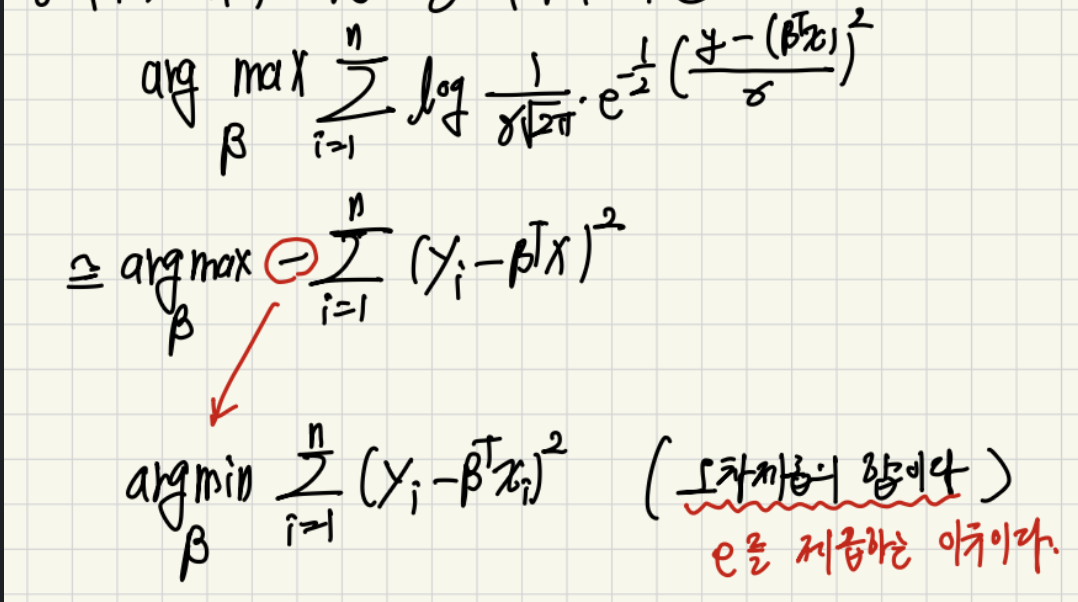 arg max β Σ i=1 n log 1/(γ√2π) · e^-1/2 ((y - (βᵀx))/γ)²
≅ arg max β - Σ i=1 n (yᵢ - βᵀx)²
arg min β Σ i=1 n (yᵢ - βᵀxᵢ)² (오차제곱의 합이다)
e를 제곱하는 이유이다.